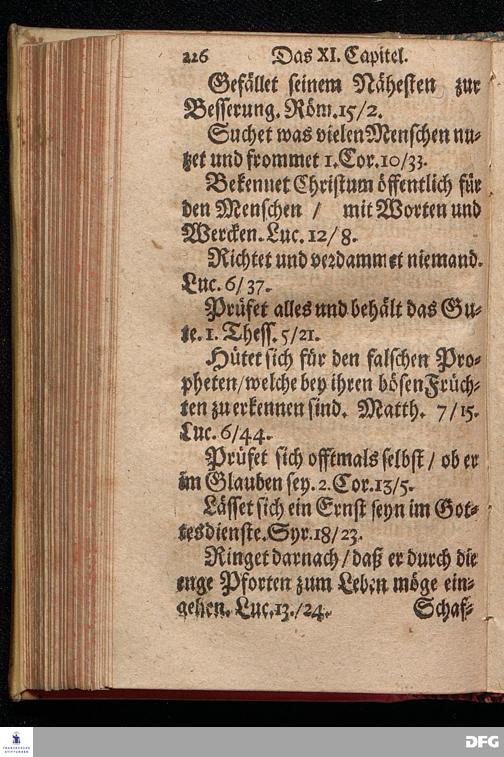 226 Das XI. Capitel.
Gefället seinem Nähesten zur
Besserung. Röm. 15/2.
Suchet was vielen Menschen nu-
tzet und frommet 1. Cor. 10/33.
Bekennet Christum öffentlich für
den Menschen / mit Worten und
Wercken. Luc. 12/8.
Richtet und verdammet niemand.
Luc. 6/37.
Prüfet alles und behält das Gu-
te. 1. Thess. 5/21.
Hütet sich für den falschen Pro-
pheten/ welche bey ihren bösen Früch-
ten zu erkennen sind. Matth. 7/15.
Luc. 6/44.
Prüfet sich offtmals selbst / ob er
im Glauben sey. 2. Cor. 13/5.
Lässet sich ein Ernst seyn im Got-
tesdienste. Syr. 18/23.
Ringet darnach / daß er durch die
enge Pforten zum Leben möge ein-
gehen. Luc. 13./24.
Schaf-
FRANCKESCHE
STIFTUNGEN
DFG